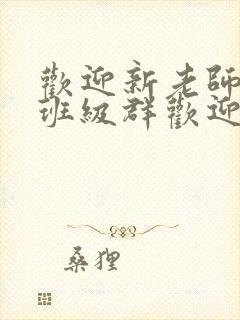 歡迎新老師
班級群歡迎
桑狸